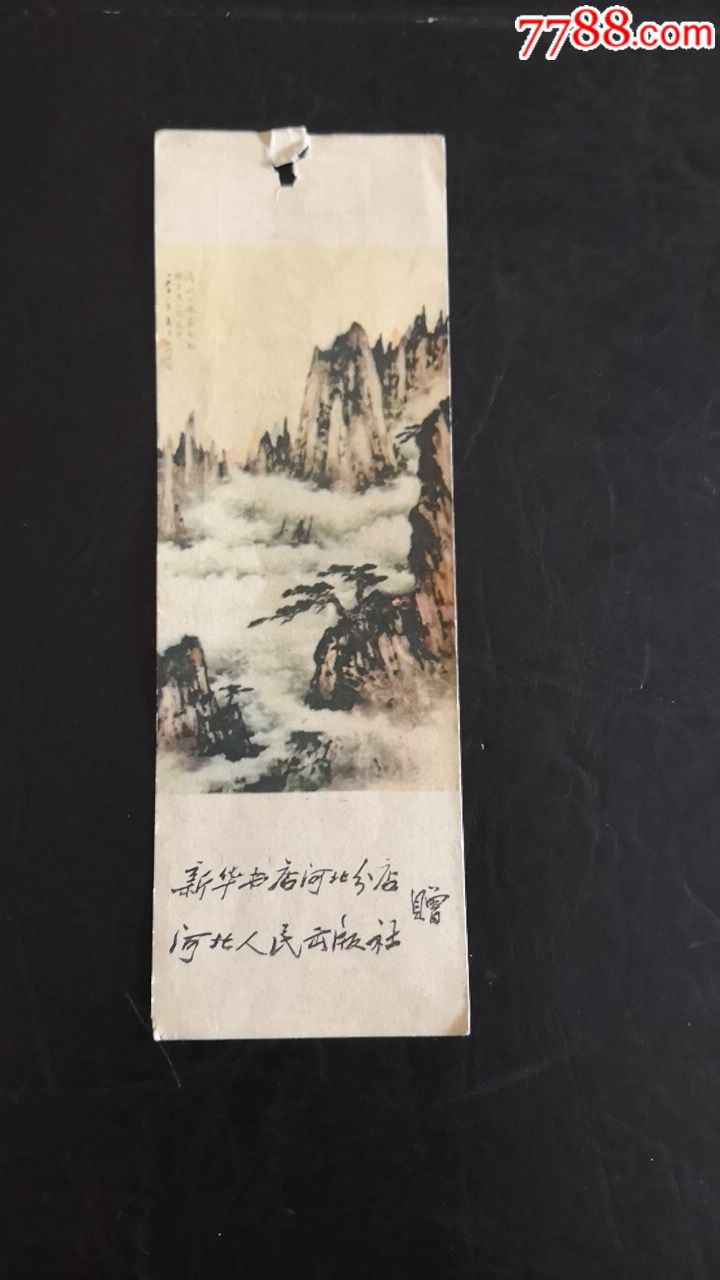 7788.com
新华书店河北分店
河北人民出版社
赠